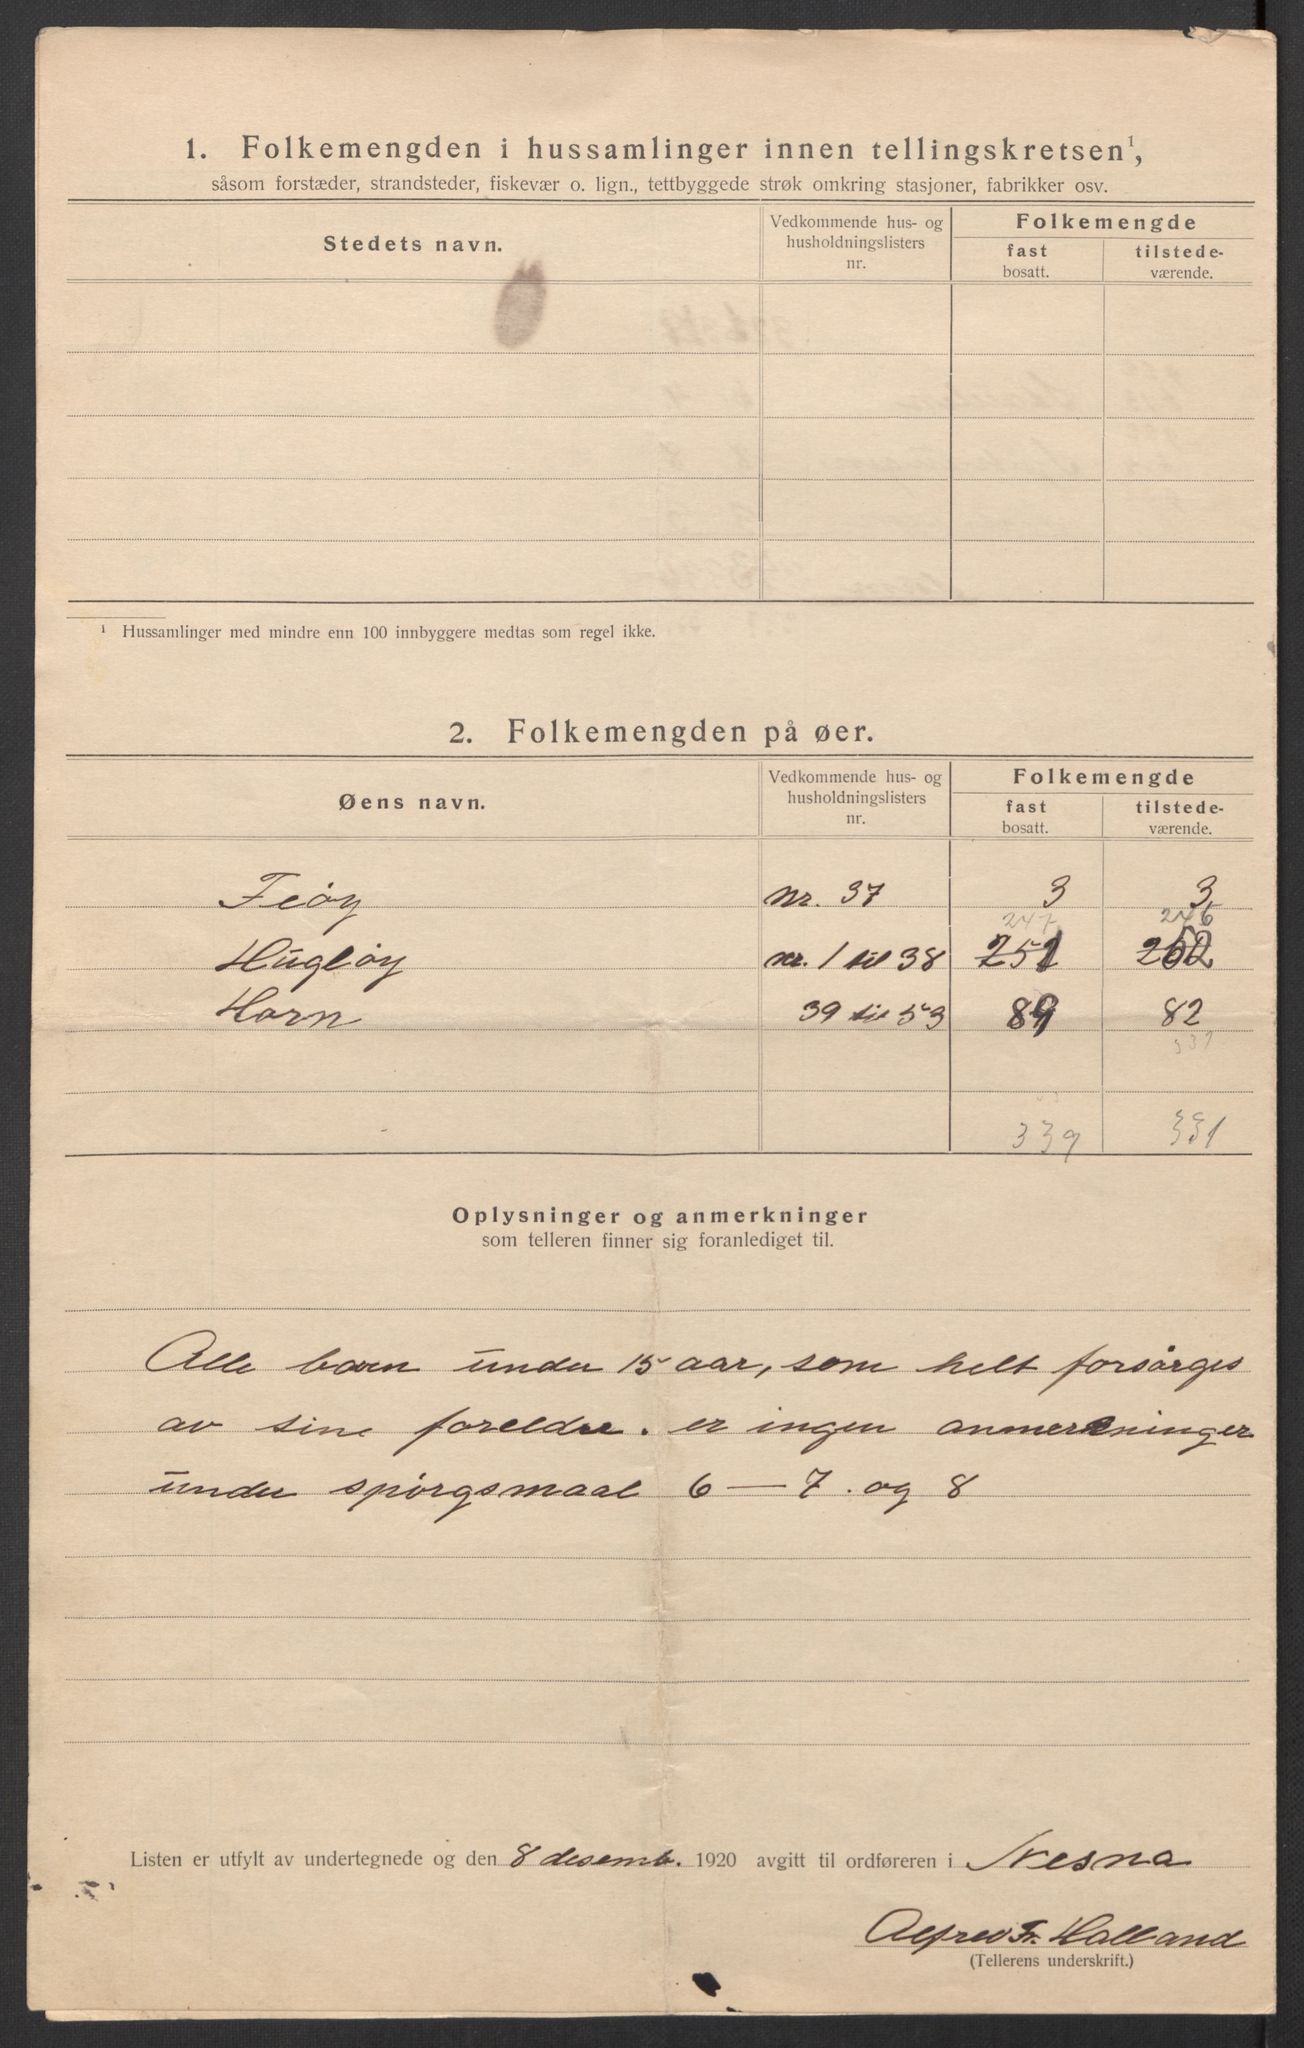 1. Folkemengden i hussamlinger innen tellingskretsen¹,
såsom forstæder, strandsteder, fiskevær o. lign., tettbyggede strøk omkring stasjoner, fabrikker osv.
Stedets navn.
Vedkommende hus- og
husholdningslisters
nr.
Folkemengde
fast
bosatt.
tilstede-
værende.
¹ Hussamlinger med mindre enn 100 innbyggere medtas som regel ikke.
2. Folkemengden på øer.
Øens navn.
Vedkommende hus- og
husholdningslisters
nr.
Folkemengde
fast
bosatt.
tilstede-
værende.
nr. 37 3 3
247 246
Hugløy nr. 1 til 38 251 252
Horn 39 til 53 89 82
331
339 331
Oplysninger og anmerkninger
som telleren finner sig foranlediget til.
Alle barn under 15 aar, som helt forsørges
av sine foreldre. er ingen anmerkninger
under spørgsmaal 6 — 7. og 8
Listen er utfylt av undertegnede og den 8 desemb. 1920 avgitt til ordføreren i Nesna
Alfred Fr. Halland
(Tellerens underskrift.)